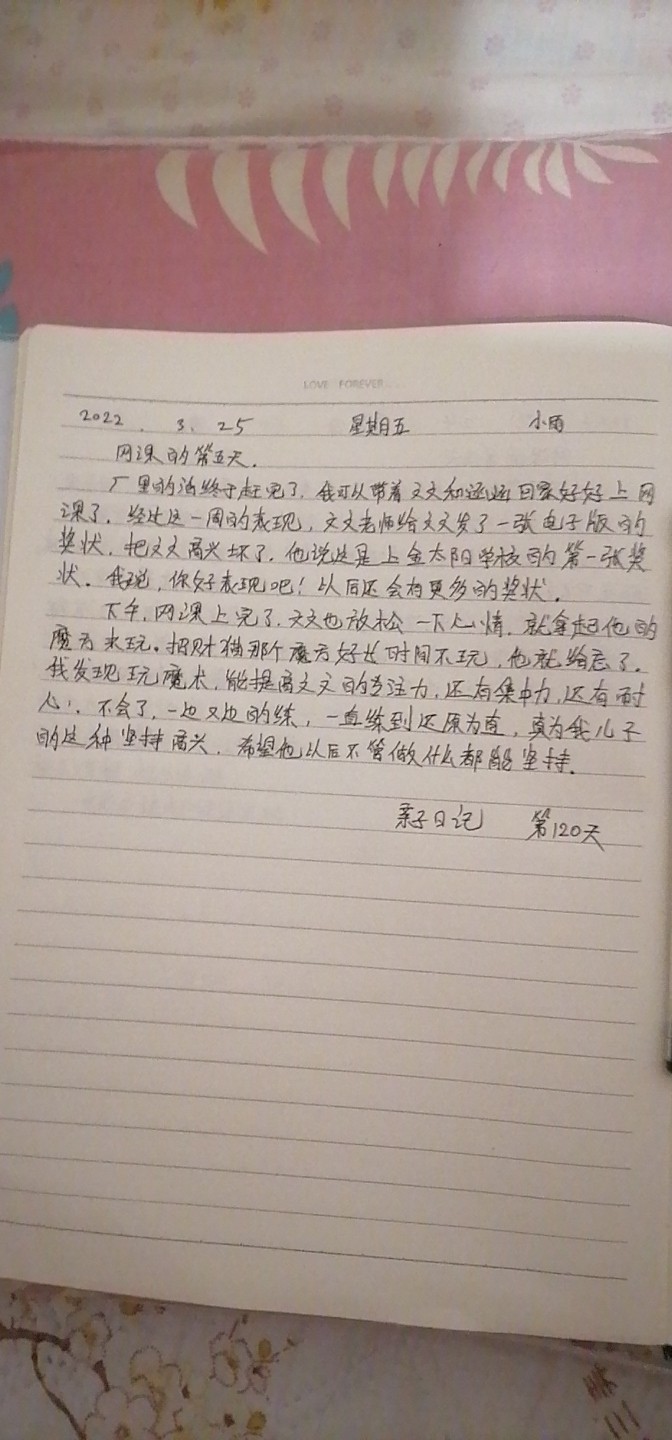 LOVE FOREVER
2022 . 3. 25 星期五 小雨
网课的第五天.
厂里的活终于赶完了, 我可以带着文文和涵涵回家好好上网
课了. 经过这一周的表现, 文文老师给文文发了一张电子版的
奖状, 把文文高兴坏了, 他说这是上金太阳学校的第一张奖
状. 我说, 你好好表现吧! 以后还会有更多的奖状.
下午, 网课上完了, 文文也放松一下心情, 就拿起他的
魔方来玩. 招财猫那个魔方好长时间不玩, 他就给忘了.
我发现玩魔术, 能提高文文的专注力, 还有集中力, 还有耐
心. 不会了, 一边又边的练, 一直练到还原为直, 真为我儿子
的这种坚持高兴, 希望他以后不管做什么都能坚持.
亲子日记 第120天